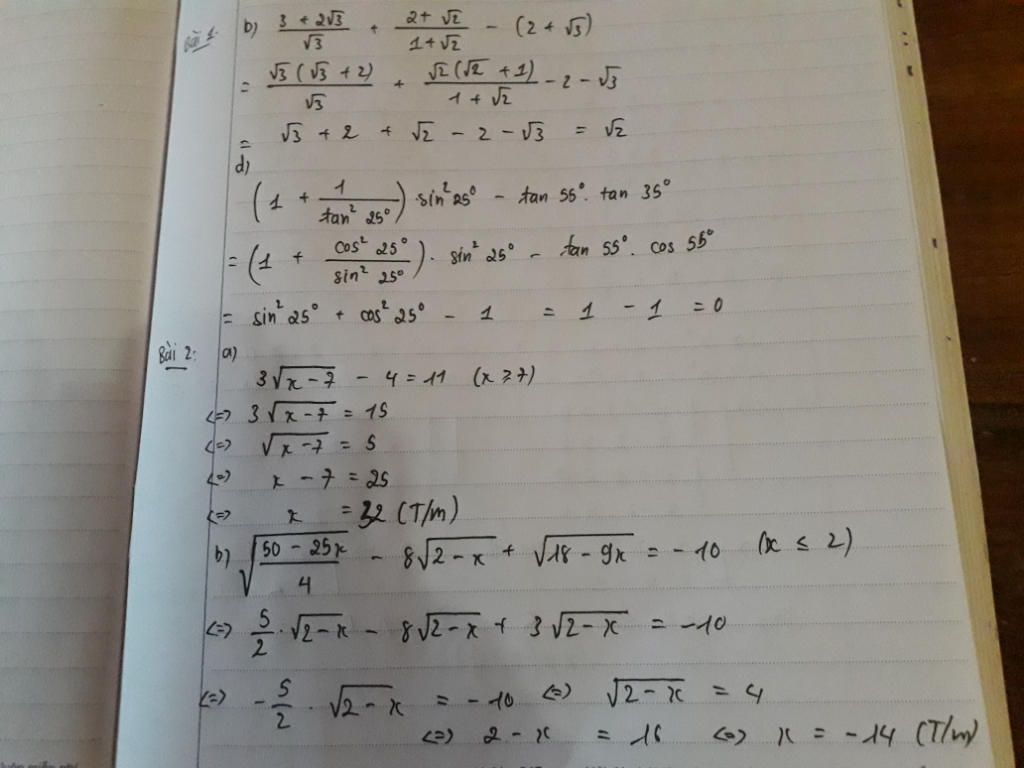 Bài 1. b) (3 + 2√3)/√3 + (2 + √2)/(1 + √2) - (2 + √3)
= √3(√3 + 2)/√3 + √2(√2 + 1)/(1 + √2) - 2 - √3
= √3 + 2 + √2 - 2 - √3 = √2
d)
(1 + 1/tan² 25°) · sin² 25° - tan 55° . tan 35°
= (1 + cos² 25°/sin² 25°) . sin² 25° - tan 55° . cos 55°
= sin² 25° + cos² 25° - 1 = 1 - 1 = 0
Bài 2: a)
3√(x - 7) - 4 = 11 (x ≥ 7)
<=> 3√(x - 7) = 15
<=> √(x - 7) = 5
<=> x - 7 = 25
<=> x = 32 (T/m)
b) √((50 - 25x)/4) - 8√(2 - x) + √(18 - 9x) = -10 (x ≤ 2)
<=> 5/2 . √(2 - x) - 8√(2 - x) + 3√(2 - x) = -10
<=> -5/2 . √(2 - x) = -10 <=> √(2 - x) = 4
<=> 2 - x = 16 <=> x = -14 (T/m)